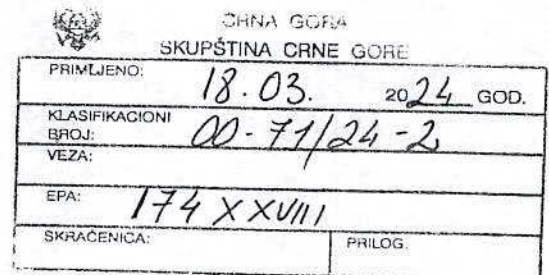 CRNA GORA
SKUPŠTINA CRNE GORE
PRIMLJENO: 18.03. 2024 GOD.
KLASIFIKACIONI
BROJ: 00-71/24-2
VEZA:
EPA: 174 XXVIII
SKRAĆENICA: PRILOG: